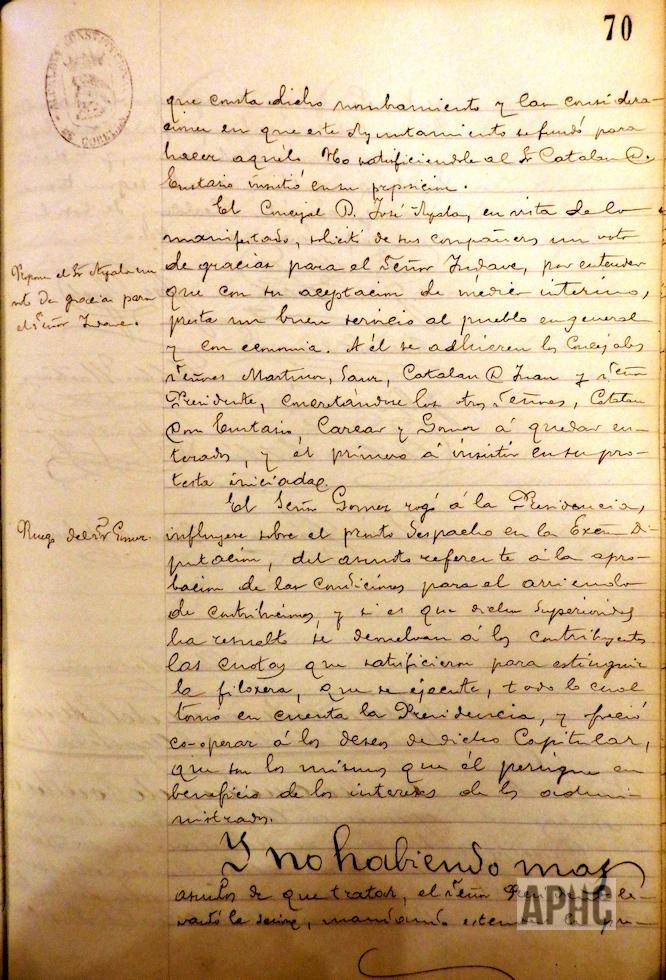 70
ALCALDIA CONSTITUCIONAL
DE CORELLA
que consta dicho nombramiento y las considera-
ciones en que este Ayuntamiento se fundó para
hacer aquél. No satisficiendole al Sr Catalan D.
Eustasio insistió en su preposicion.
El Concejal D. José Ayala, en vista de lo
manifestado, solicitó de sus compañeros un voto
de gracias para el Señor Yudave, por entender
que con su aceptacion de médico interino,
presta un buen servicio al pueblo en general
y con economia. A él se adhieren los Concejales
Señores Martinez, Sanz, Catalan D. Juan y Señor
Presidente, concretándose los otros Señores, Catalan
Don Eustasio, Carcar y Gomez á quedar en-
terados, y el primero á insistir en su pro-
testa iniciada.
Propone el Sr Ayala un
voto de gracia para
el Señor Yudave.
El Señor Gomez rogó á la Presidencia,
influyese sobre el pronto despacho en la Excma Di-
putación, del asunto referente á la apro-
bacion de las condiciones para el arriendo
de contribuciones, y si es que dicha Superioridad
ha resuelto se devuelvan á los contribuyentes
las cuotas que satisficieron para estinguir
la filoxera, que se ejecute, todo lo cual
tomó en cuenta la Presidencia, y ofreció
co-operar á los deseos de dicho Capitular,
que son los mismos que él persigue en
beneficio de los intereses de los admi-
nistrados.
Ruego del Sr Gomez.
Y no habiendo mas
asuntos de que tratar, el Señor Presidente le-
vantó la sesion, mandando estender la pre-
APHC